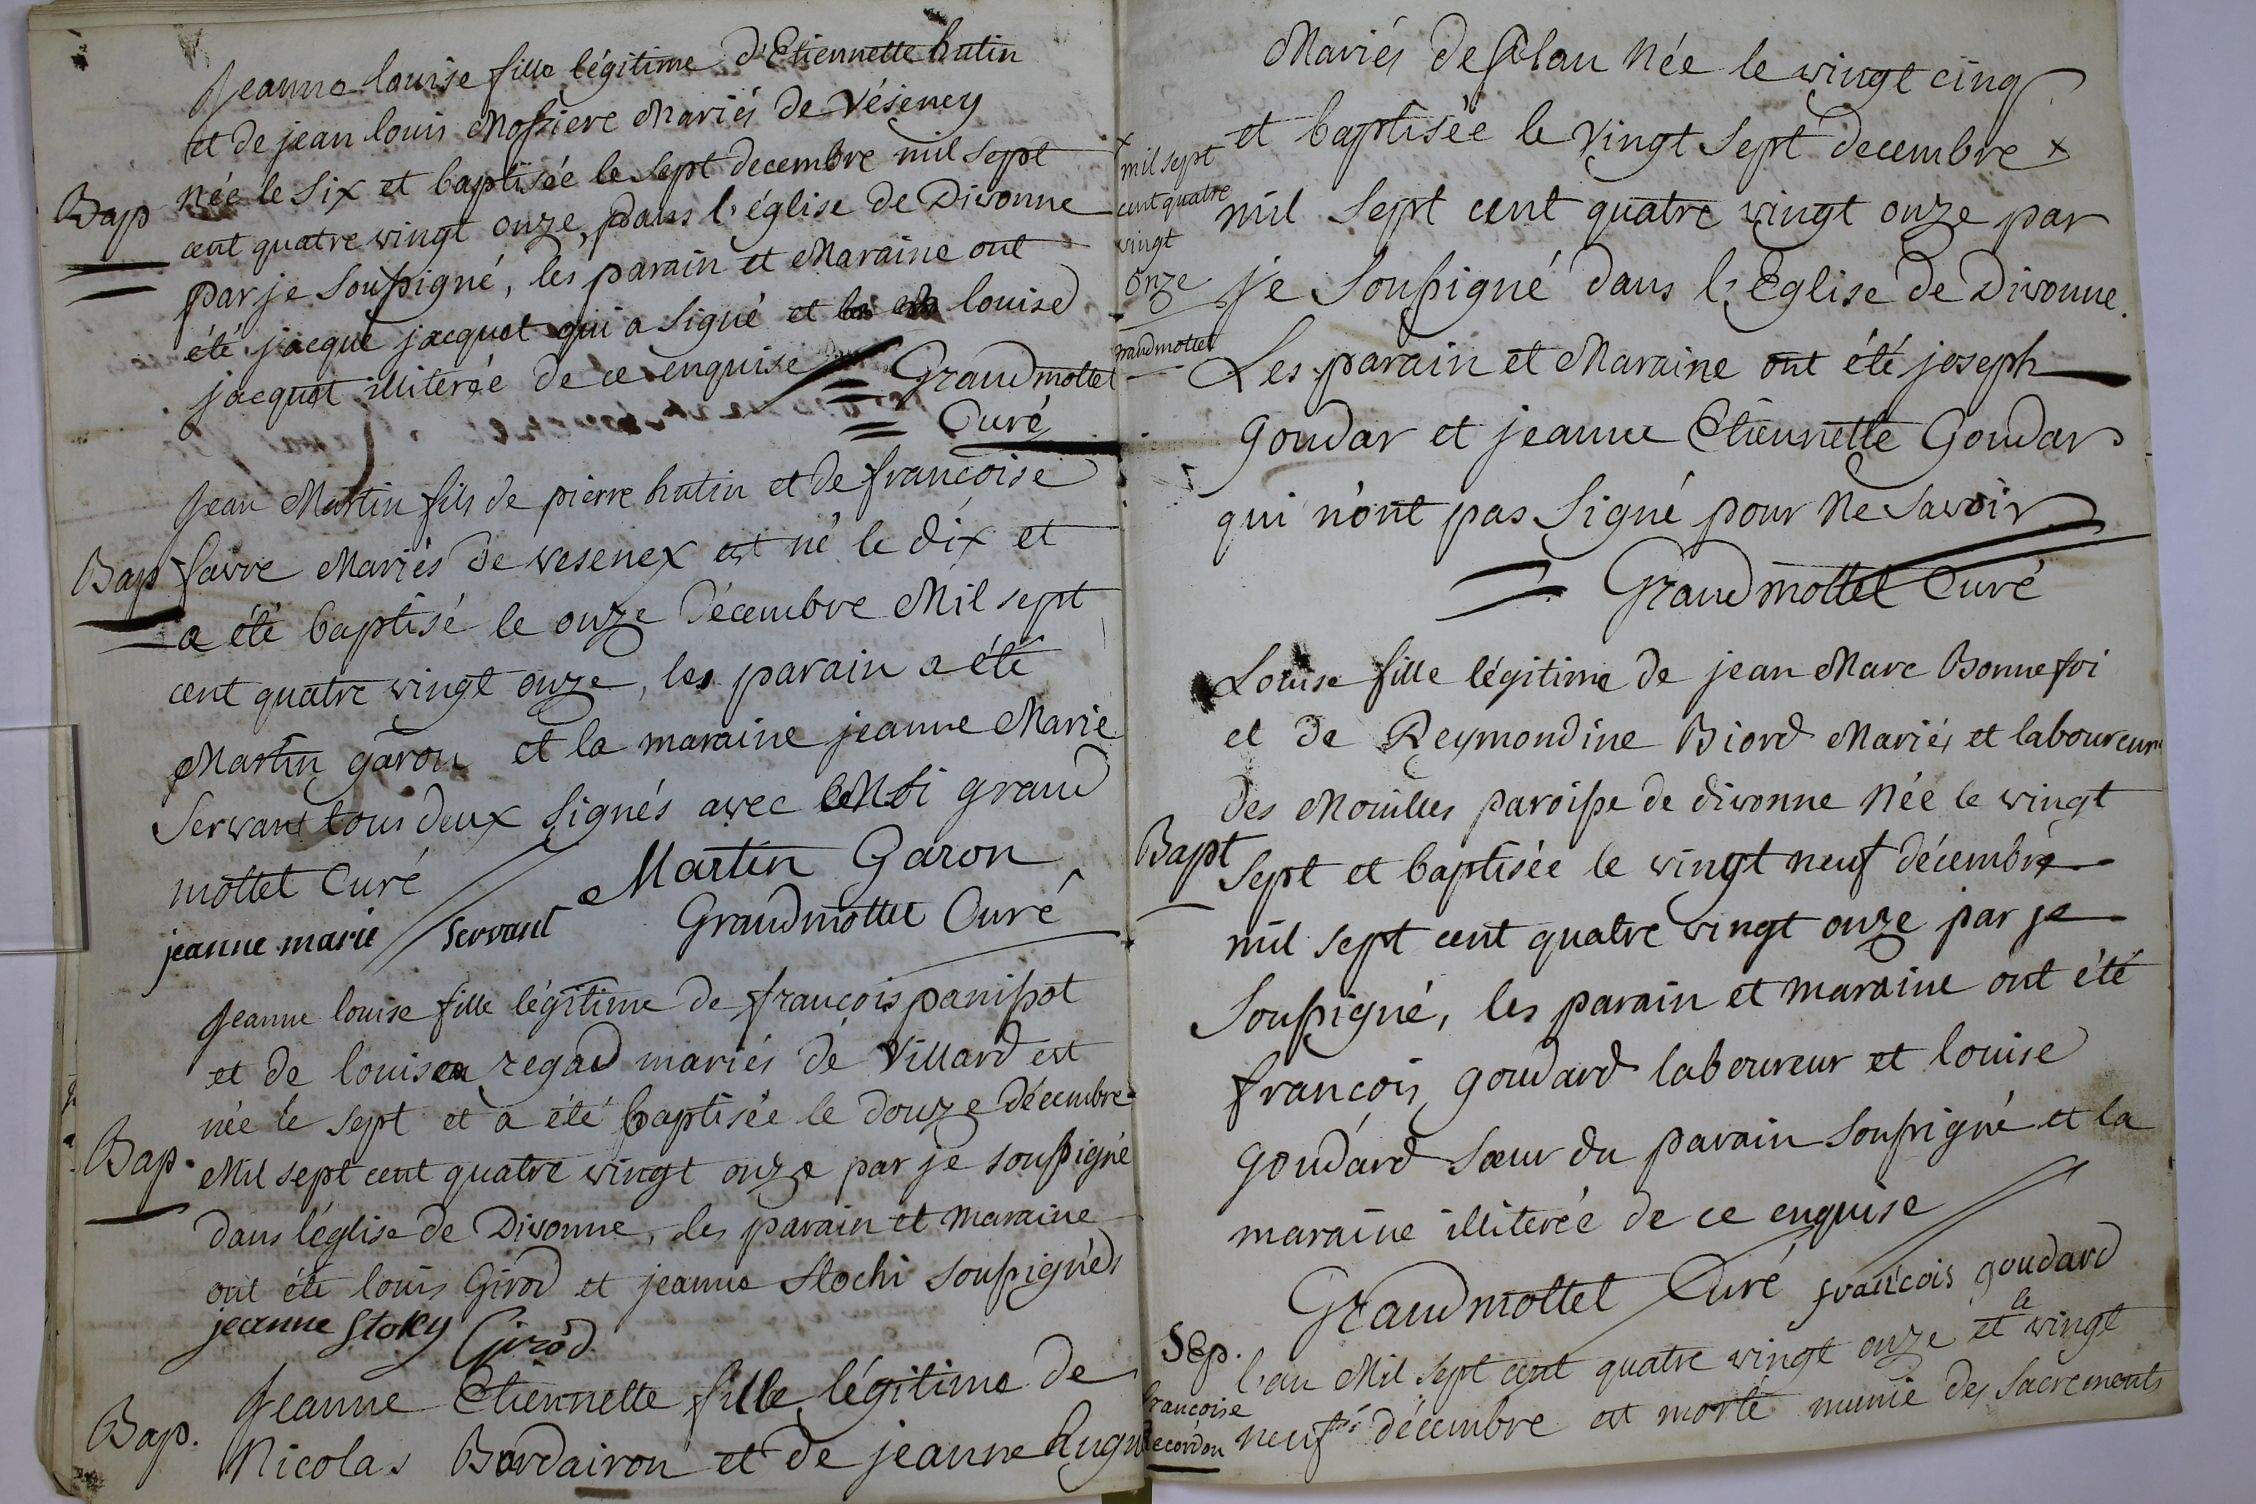 Jeanne louise fille légitime d'Etiennette hutin
et de jean louis Mossiere Mariés de Véseney
Bap
née le six et baptisée le sept decembre mil sept
cent quatre vingt onze, dans l'église de Divonne
par je soussigné, les parain et Maraine ont
été jacque jacquet qui a signé et louise
jacquet illiterée de ce enquise
Grandmottet
Curé
Jean Martin fils de pierre hutin et de francoise
Bap
favre Mariés de vesenex est né le dix et
a été baptisé le onze Décembre Mil sept
cent quatre vingt onze, les parain a été
Martin garon et la maraine jeanne Marie
Servant tous deux signés avec Moi grand
mottet Curé
Martin Garon
jeanne marie servant
Grandmottet Curé
Jeanne louise fille légitime de francois panissot
et de louise regad mariés de Villard est
née le sept et a été baptisée le douze Décembre
Bap.
Mil sept cent quatre vingt onze par je soussigné
dans l'église de Divonne, les parain et maraine
ont été louis Girod et jeanne Stochi soussignés
jeanne stoky Girod
Bap.
Jeanne Etiennette fille légitime de
Nicolas Bordairon et de jeanne hugu
Mariés de Née le vingt cinq
et baptisée le vingt sept decembre x
x mil sept
cent quatre
vingt
onze
grandmottet
mil sept cent quatre vingt onze par
je soussigné dans l'Eglise de Divonne.
Les parain et Maraine ont été joseph
Goudar et jeanne Etiennette Goudar
qui n'ont pas signé pour ne savoir
Grandmottet Curé
Louise fille légitime de jean Marc Bonnefoi
et de Reymondine Biord Mariés et laboureurs
des Mouilles paroisse de divonne Née le vingt
Bapt
sept et baptisée le vingt neuf décembre
mil sept cent quatre vingt onze par je
soussigné, les parain et maraine ont été
francois goudard laboureur et louise
goudard sœur du parain soussigné et la
maraine illiterée de ce enquise
Grandmottet Curé francois goudard
Sep.
francoise
Recordon
l'an Mil sept cent quatre vingt onze et le vingt
neuf décembre est morte munie des sacrements